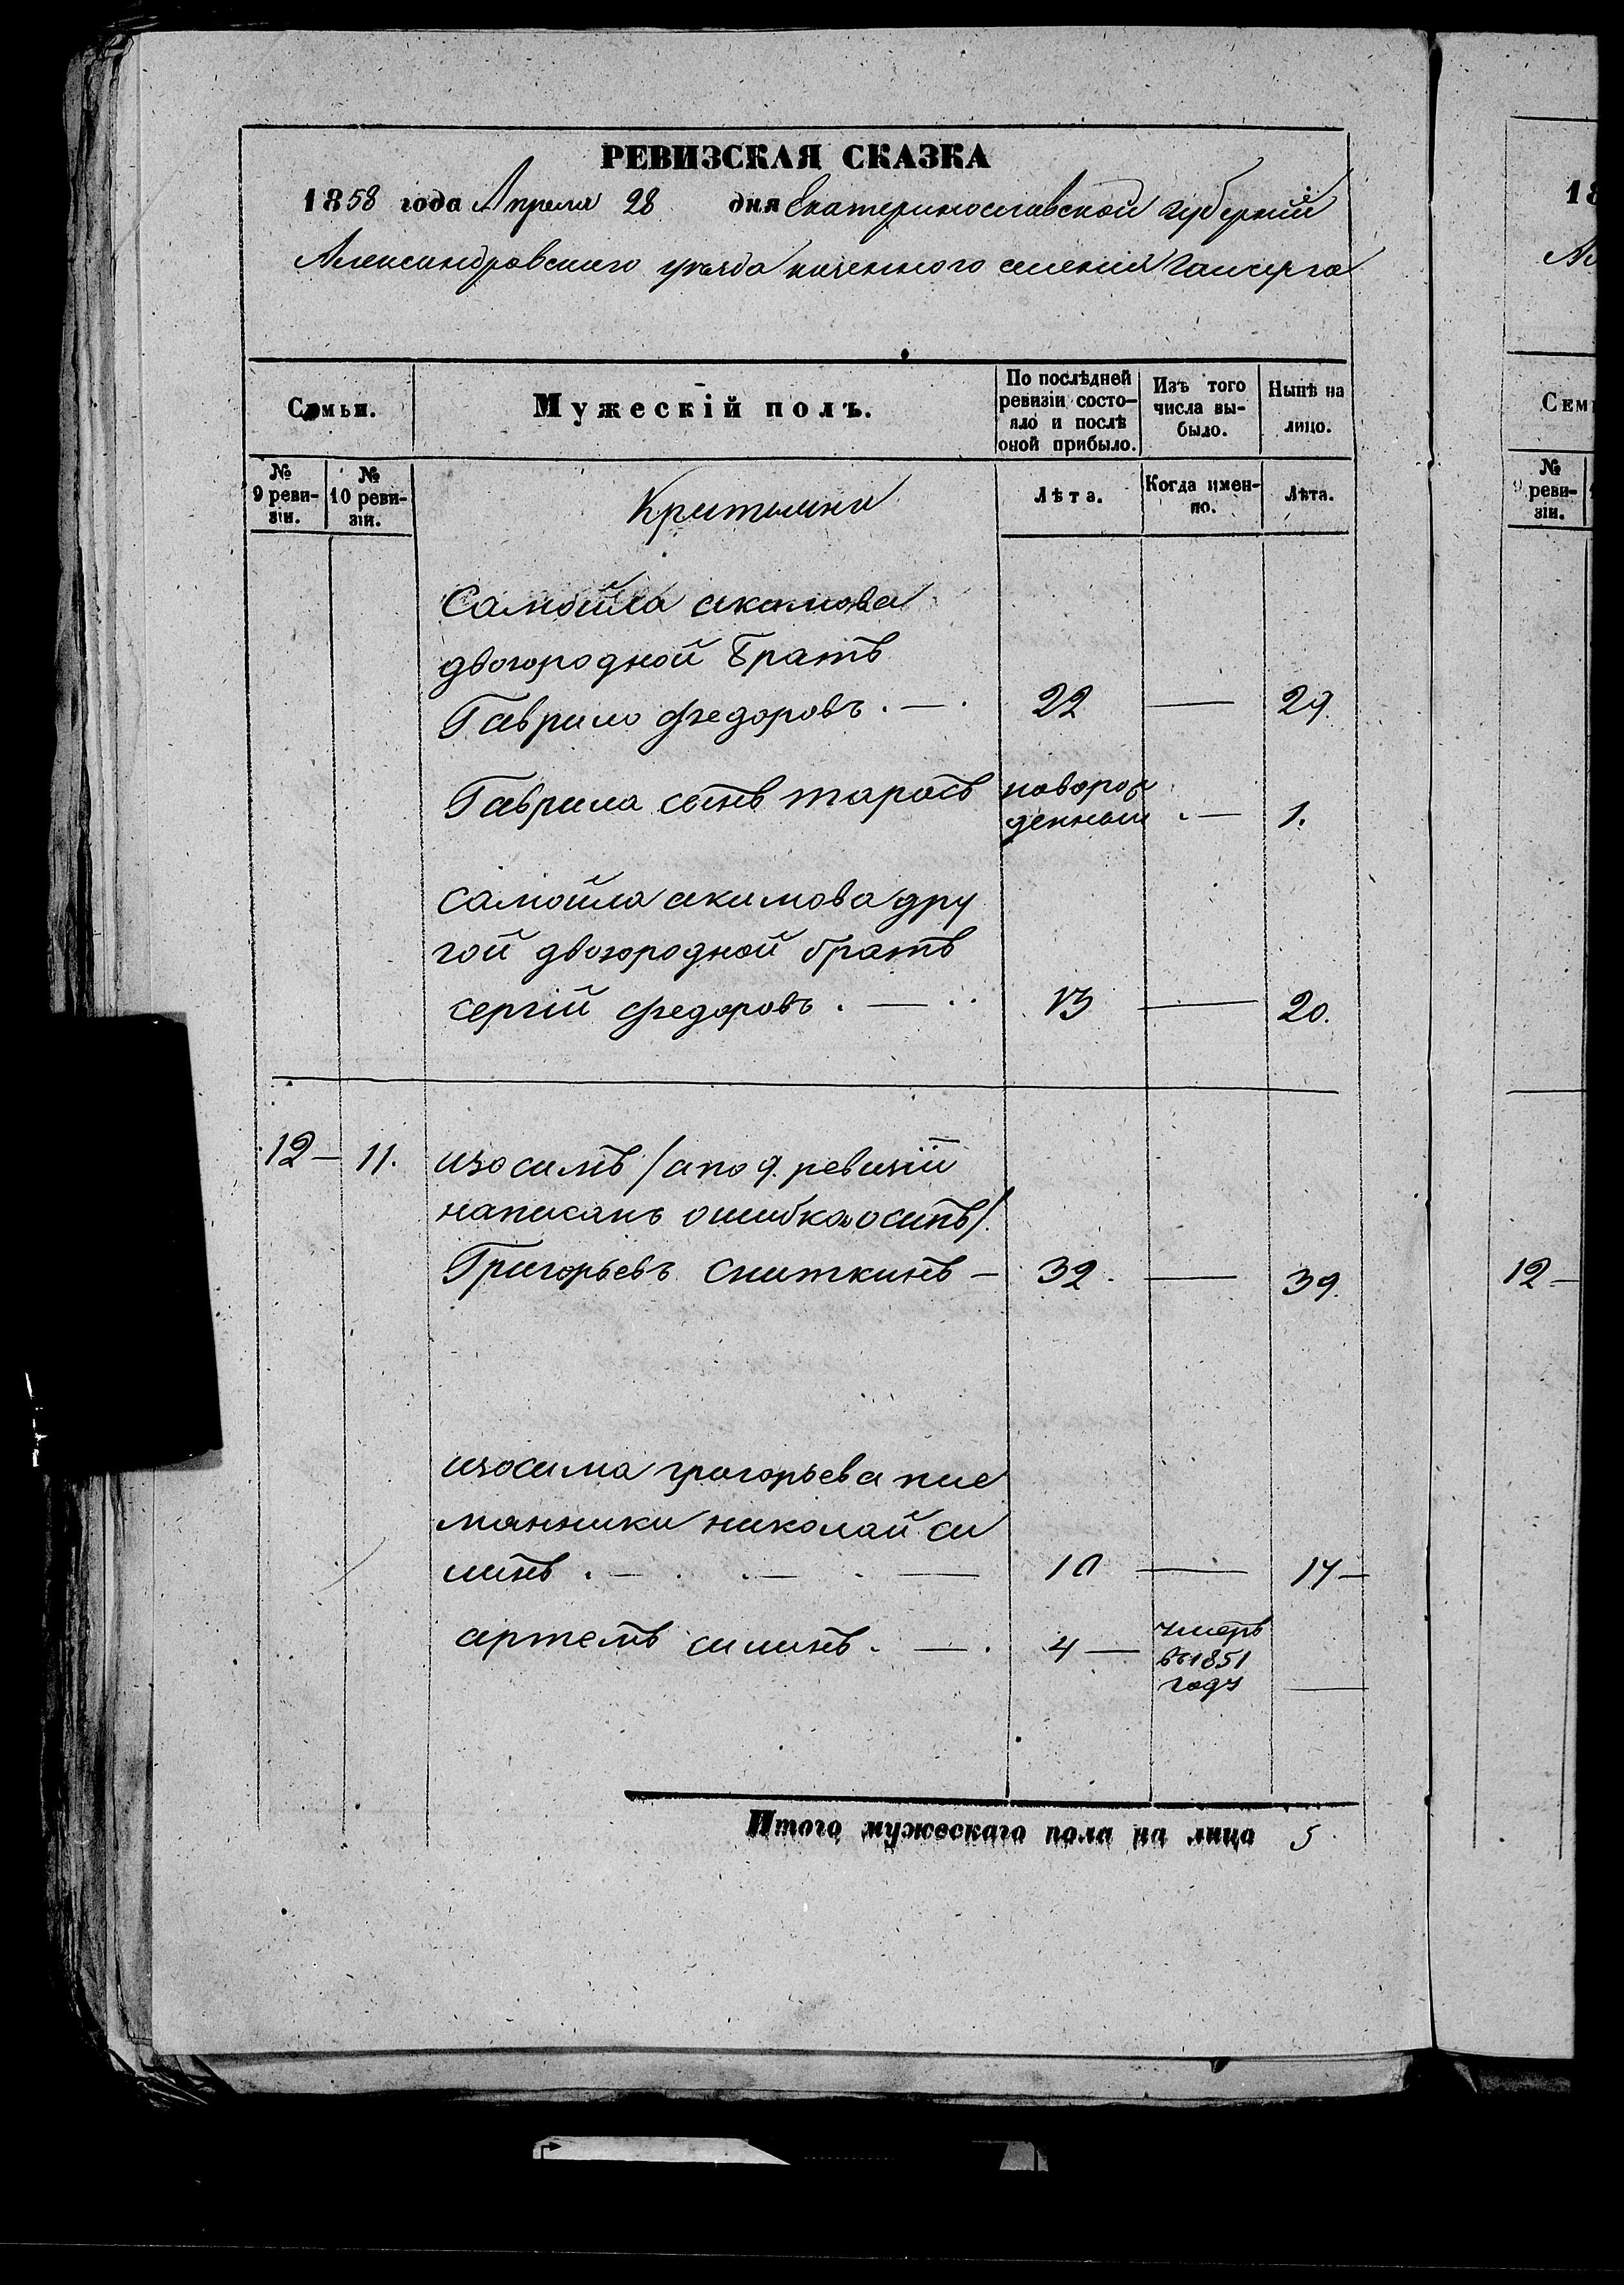 РЕВИЗСКАЯ СКАЗКА
1858 года Апреля 28 дня Екатеринославской губерніи
Александровскаго уезда казенного селения Гайчула
Семьи.
Мужескій полъ.
По послѣдней ревизіи состо-яло и послѣ оной прибыло.
Изъ того числа вы-было.
Нынѣ на лицо.
№ 9 реви-зіи.
№ 10 реви-зіи.
Лѣта.
Когда имен-но.
Лѣта.
Самойла акимова
двоюродной братъ
Гаврило федоровъ . — . 22 — 29.
Гаврила сынъ тарасъ новорож денный . — 1.
самойла акимова дру
гой двоюродной братъ
сергій федоровъ . — .. 13 — 20.
12 — 11. изосимъ / а по 9. ревизіи
написанъ ошибкою осипъ /.
Григорьевъ Сниткинъ — 32. — 39.
изосима григорьева пле
мянники николай си
линъ . — . . — . — 10 — 17 —
артемъ силинъ . — . 4 — умеръ въ 1851 году —
Итого мужескаго пола на лицо 5
18
Сем
№ 9 реви-зіи.
12 —